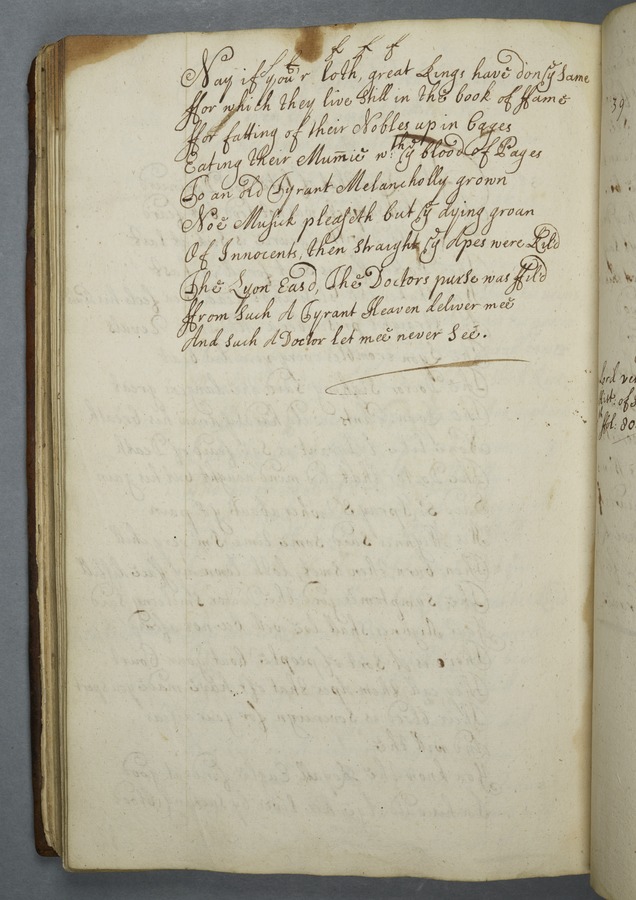 Nay if you'r loth, great Kings have don ye same
ffor which they live still in the book of ffame
ffor fatting of their Nobles up in Cages
Eating their Mum̄ie wth ye blood of Pages
To an old Tyrant Melancholly grown
Noe Musick pleaseth but ye dying groan
Of Innocents, then straight ye Apes were Kild
The Lyon Easd, The Doctors purse was ffild
ffrom such A Tyrant Heaven deliver mee
And such A Doctor let mee never see.
39
ffol: 80